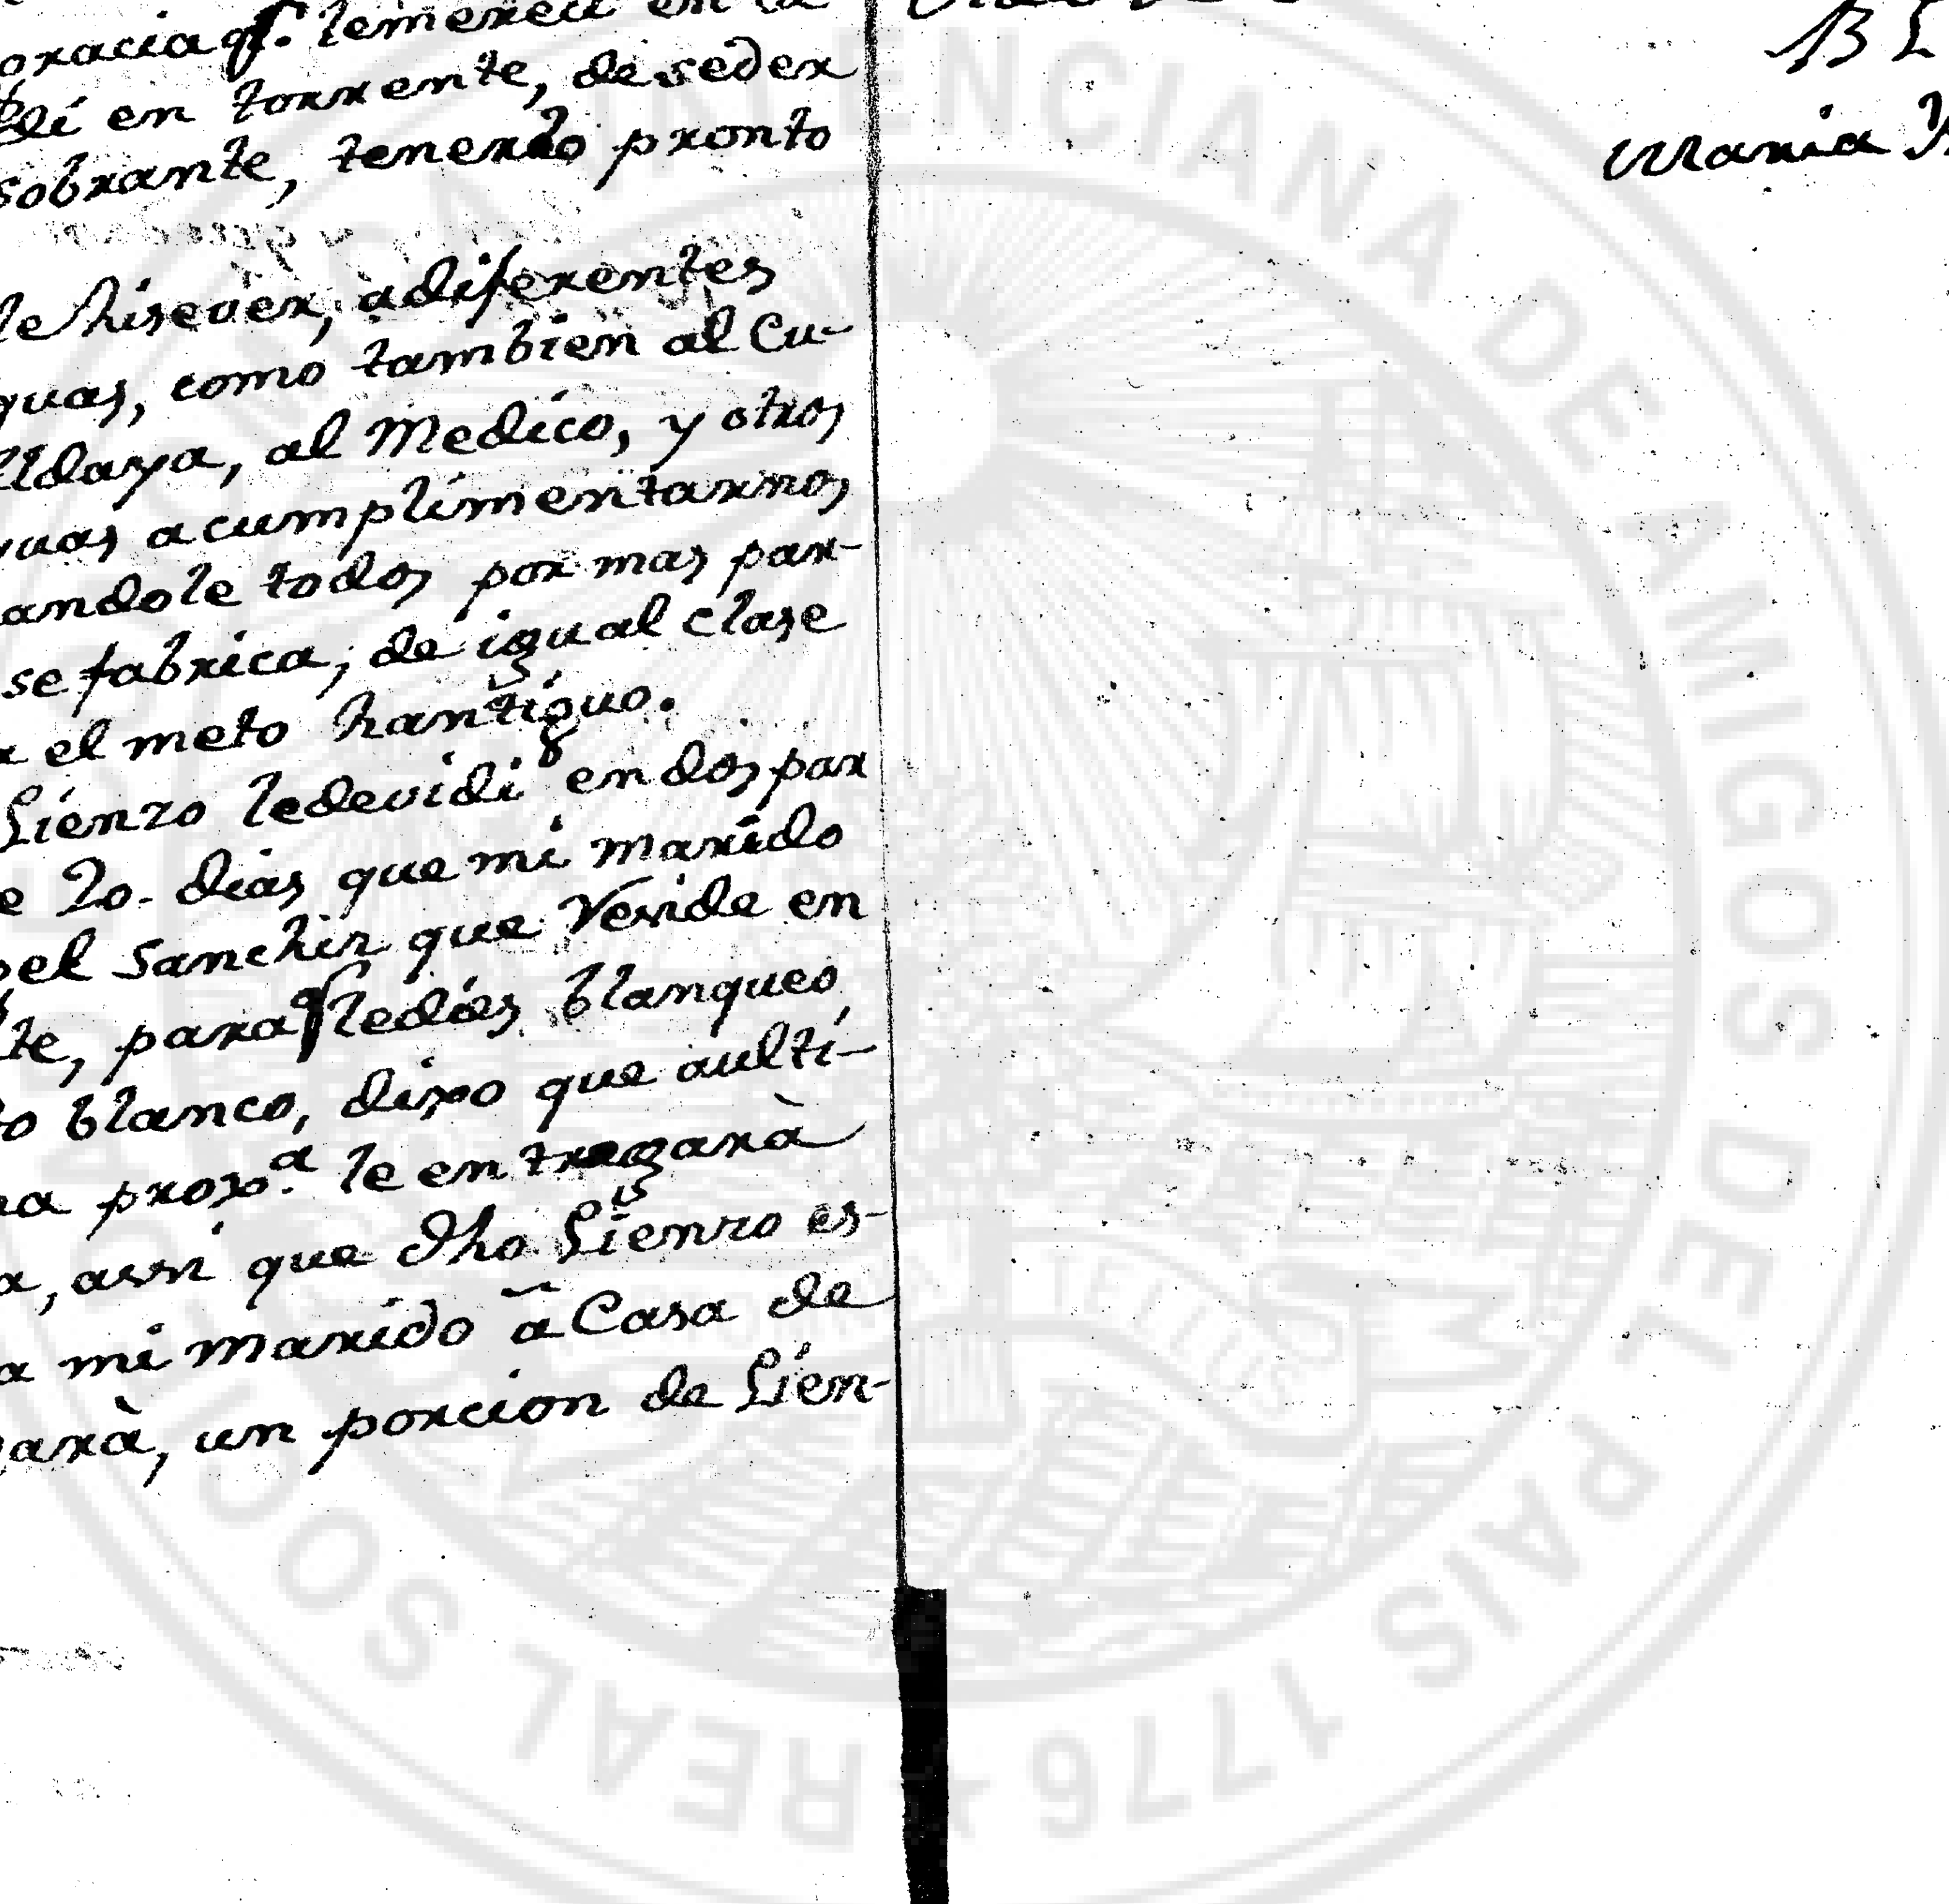 oracia q.e lemereci en la
en torrente, de seder
sobrante, tenerlo pronto
le hisever, a diferentes
guas, como tambien al Cu-
lldaya, al Medico, y otros
guas a cumplimentarnos
andole todos por mas par-
se fabrica, de igual clase
el meto hantiguo.
Lienzo ledevidi en dos par
e 20. dias que mi marido
el Sanchiz que Reside en
te, para q ledies blanqueo
to blanco, dixo que aulti-
na prox.a le entregarà
a, assi que dho Lienzo es-
a mi marido ã Casa de
garà, un porcion de Lien-
B L
Maria
REAL SO VALENCIANA DE AMIGOS DEL PAIS 1776